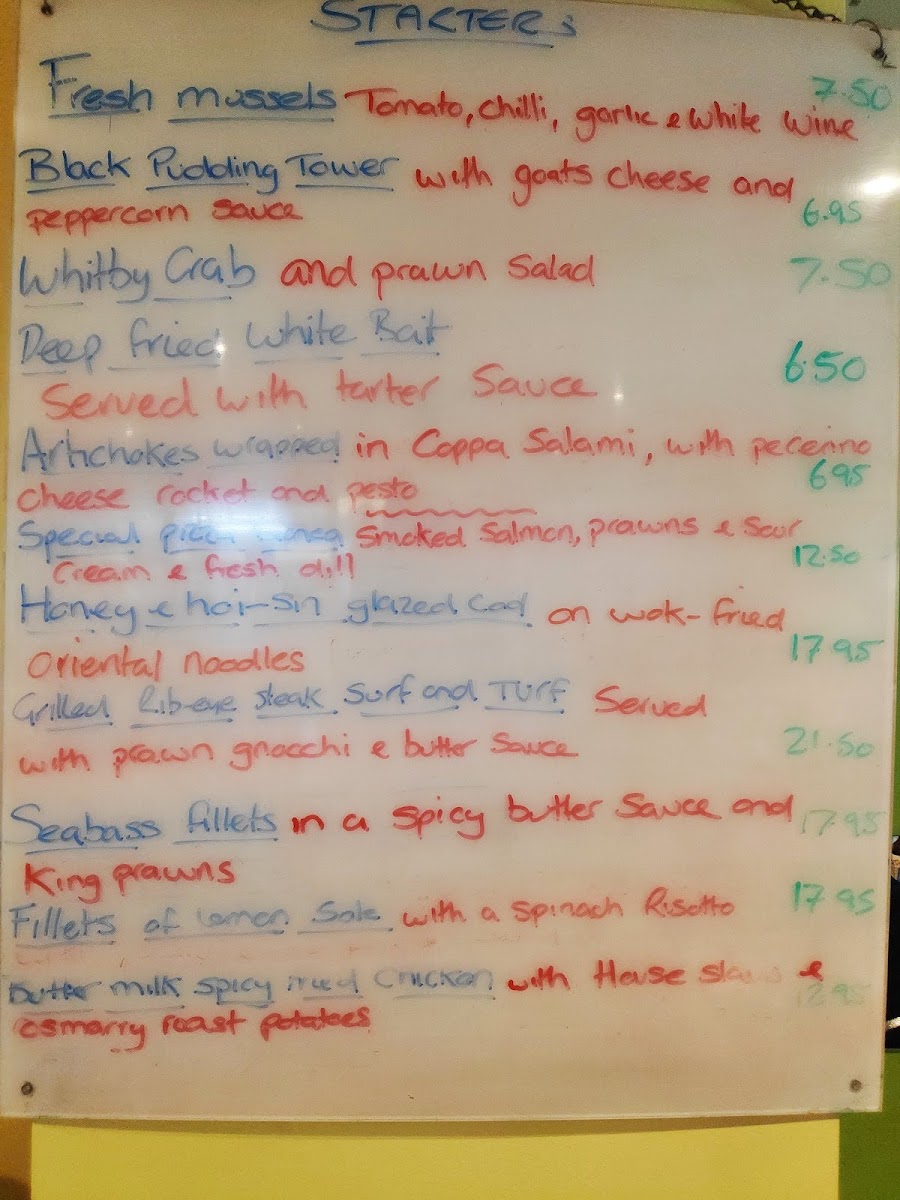 STARTERS
Fresh mussels Tomato, chilli, garlic & white wine 7.50
Black Pudding Tower with goats cheese and
peppercorn sauce 6.95
Whitby Crab and prawn Salad 7.50
Deep fried White Bait
Served with tarter Sauce 6.50
Artichokes wrapped in Coppa Salami, with pecerino
cheese rocket and pesto 6.95
Special Smoked Salmon, prawns & Sour
Cream & fresh dill 12.50
Honey & hoi-sin glazed Cod on wok-fried
oriental noodles 17.95
Grilled Rib-eye steak Surf and Turf Served
with prawn gnocchi & butter Sauce 21.50
Seabass fillets in a spicy butter Sauce and 17.95
King prawns
Fillets of lemon Sole with a spinach Risotto 17.95
butter milk spicy fried Chicken with House &
osmarry roast potatoes